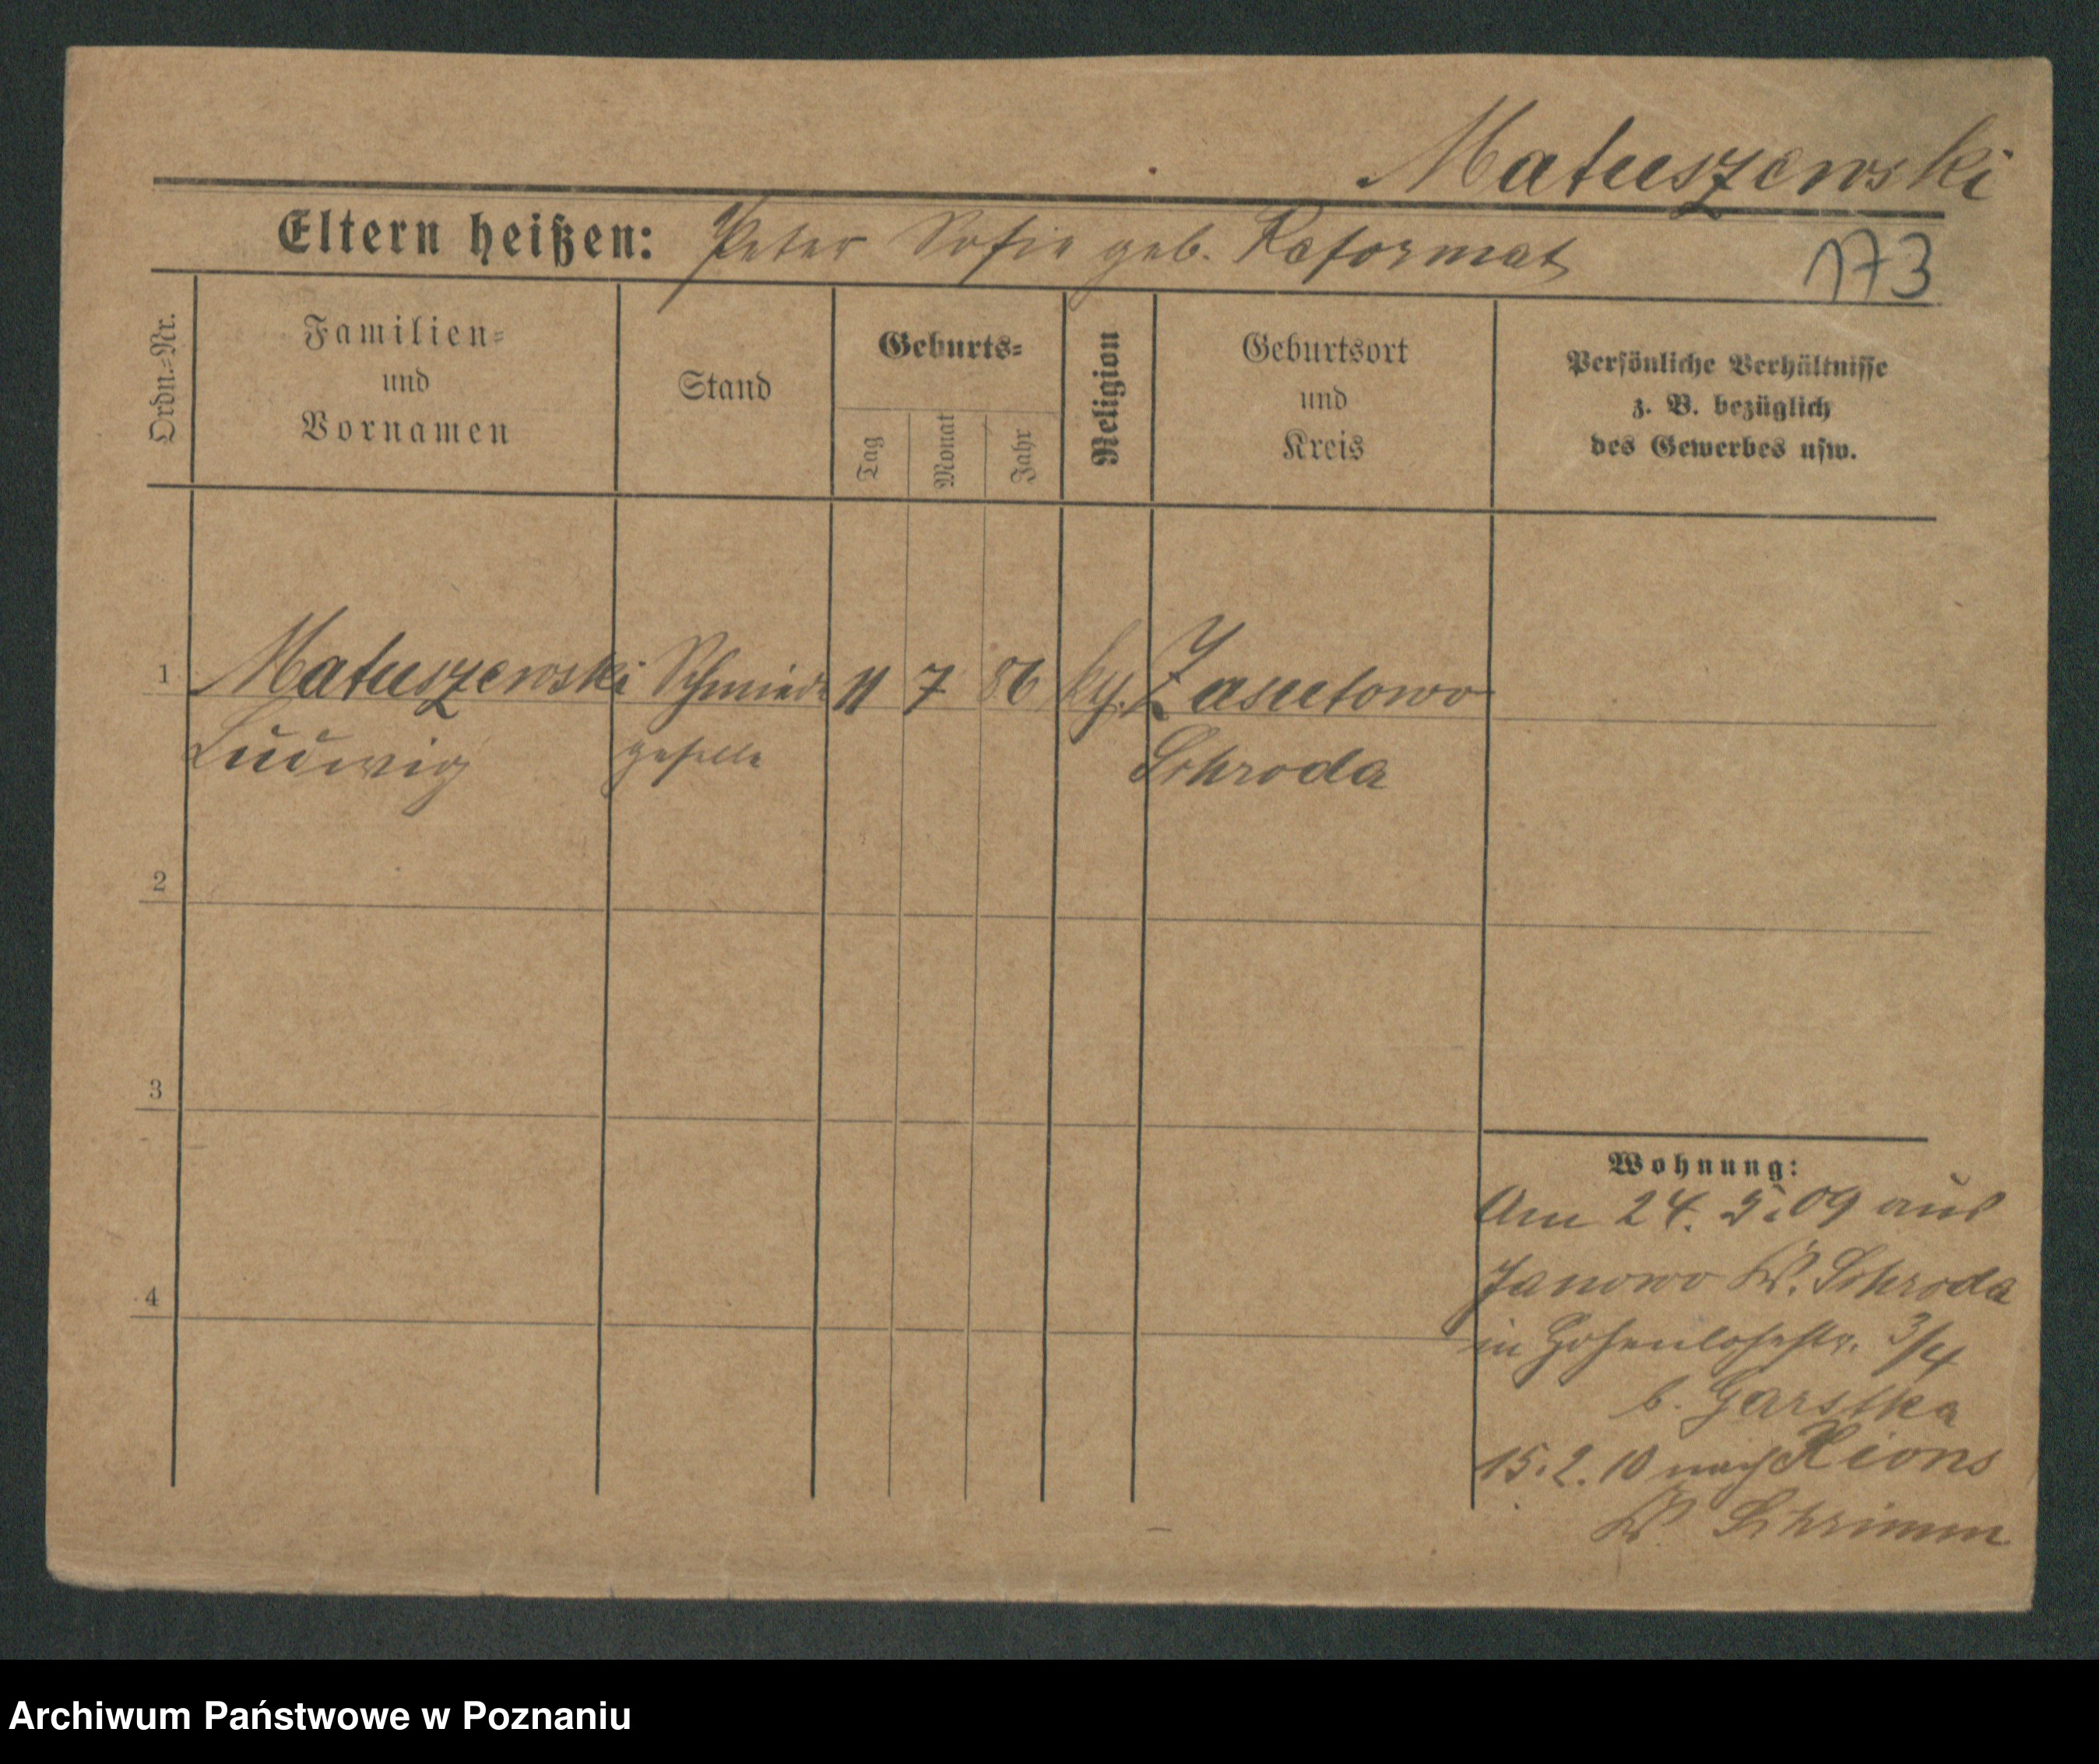 Matuszewski
Eltern heißen: Peter Sofie geb. Reformat
173
Ordn.=Nr.
Familien=
und
Vornamen
Stand
Geburts=
Tag
Monat
Jahr
Religion
Geburtsort
und
Kreis
Persönliche Verhältnisse
z. B. bezüglich
des Gewerbes usw.
1 Matuszewski Schmiede 11 7 86 Zasutowo
Ludwig geselle Schroda
2
3
4
Wohnung:
Am 24. 5. 09 aus
Janowo Kr. Schroda
in Hohenlohestr. 3/4
b. Garstka
15. 2. 10 nach Xions
Kr. Schrimm
Archiwum Państwowe w Poznaniu